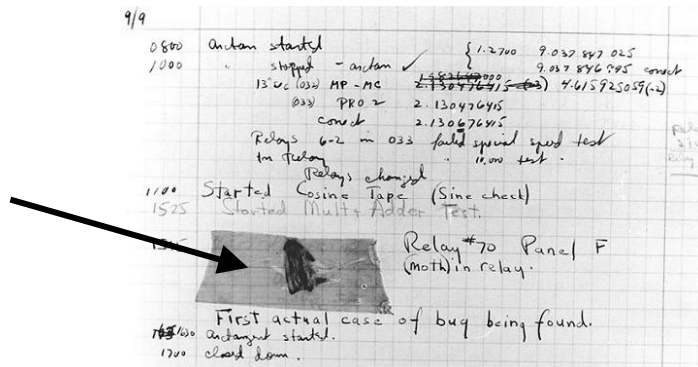 9/9
0800 antan started { 1.2700 9.037 847 025
1000 " stopped - antan ✓ 9.037 846 795 conect
(032) MP - MC 2.130476415 4.615925059(-2)
(033) PRO 2 2.130476415
conect 2.130676415
Relays 6-2 in 033 failed special speed test
In Relay " 10,000 test .
Relays changed
1100 Started Cosine Tape (Sine check)
1525 Started Mult+Adder Test.
1545 Relay #70 Panel F
(moth) in relay.
First actual case of bug being found.
1630 antangent started.
1700 closed down.